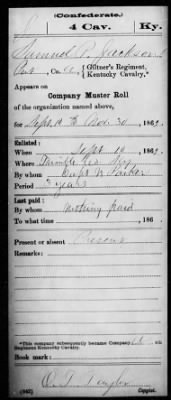 (Confederate.)
4 Cav. Ky.
Samuel P. Jackson
Pvt, Co. A, Giltner's Regiment, Kentucky Cavalry.*
Appears on
Company Muster Roll
of the organization named above,
for Sept. 10 to Nov. 30, 1862.
Enlisted:
When Sept 10, 1862.
Where Trimble Co. Ky
By whom Capt N Parker
Period 3 years
Last paid:
By whom Nothing paid
To what time , 186 .
Present or absent Present
Remarks:
*This company subsequently became Company A, 4th Regiment Kentucky Cavalry.
Book mark:
(642) Copyist.